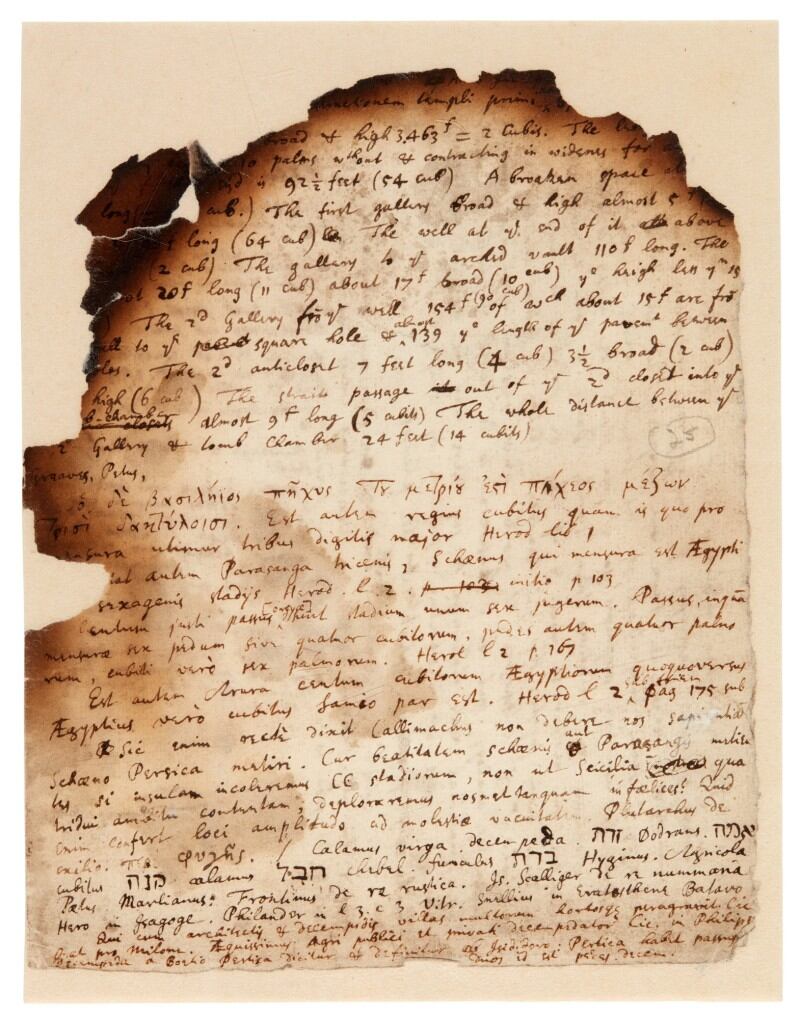 unctionem templi prim
road & high 3.463f = 2 Cubis. The
palms without & contracting in widenes for
is 92½ feet (54 cub) A broaken space
long cub.) The first gallery broad & high almost 5
f long (64 cub) The well at ye end of it above
(2 cub) The gallery to ye arched vault 110f long. The
ot 20f long (11 cub) about 17f broad (10 cub) ye heigh less yn 15
The 2d Gallery frō ye well 154f (90 cub) of wch about 15f are frō
ll to ye square hole & almost 139 ye length of ye pavemt between
les. The 2d anticloset 7 feet long (4 cub) 3½ broad (2 cub)
high (6 cub) The straite passage out of ye 2d closet into ye
b-chamber almost 9f long (5 cubits) The whole distance between ye
2 Gallery & tomb Chamber 24 feet (14 cubits)
25
Greaves, Petus,
ὁ δὲ βασιλήϊος πῆχυς τȣ͂ μετρίȣ ἐστὶ πήχεος μέζων
τρισὶ δακτύλοισι. Est autem regius cubitus quam is quo pro
mensura utimur tribus digitis major Herod lib 1
autem Parasanga tricenis, Schœnus qui mensura est Ægypti
sexagenis stadijs Herod. l. 2. initio p 103
Centum justi passus stadium unum sex jugerum. Passus, inquā
mensuræ sex pedum sive quatuor cubitorum, pedes autem quatuor palmo
rum, cubiti verò sex palmorum. Herod l 2 p. 167
Est autem Arura centum cubitorum Ægyptiorum quoquoversus
Ægyptius verò cubitus Samio par est. Herod l 2, pag 175 sub
Sic enim rectè dixit Callimachus non debere nos sapientiā
Schœno Persica metiri. Cur beatitatem schœnis aut Parasangis metien
tes si insulam incoleremus CC stadiorum, non ut Scicilia qua
tridui ambitu contentam, deploraremus nosmet tanquam infœlices? Quid
enim confert loci amplitudo ad molestiæ vacuitatem. Plutarchus de
exilio. φυγῆς. / Calamus virga decempeda. זרת Dodrans. אמה
cubitus קנה calamus חבל chebel funculus ברת Hyginus. Agricola
Pœtus Marlianus. Frontinus de re rustica. Js. Scalliger de re nummaria
Hero in Isagoge. Philander in l 3. c 3 Vitr. Snellius in Eratosthene Batavo
Qui cum architectis & decempedis villas multorum hortosqz peragravit. Cic
pro Milone. Æquissimus agri publici et privati decempedator Cic. in Philipp
Decempeda a Boetio Pertica dicitur & definitur ab Isididoro. Pertica habet passus
duos id est pedes decem.